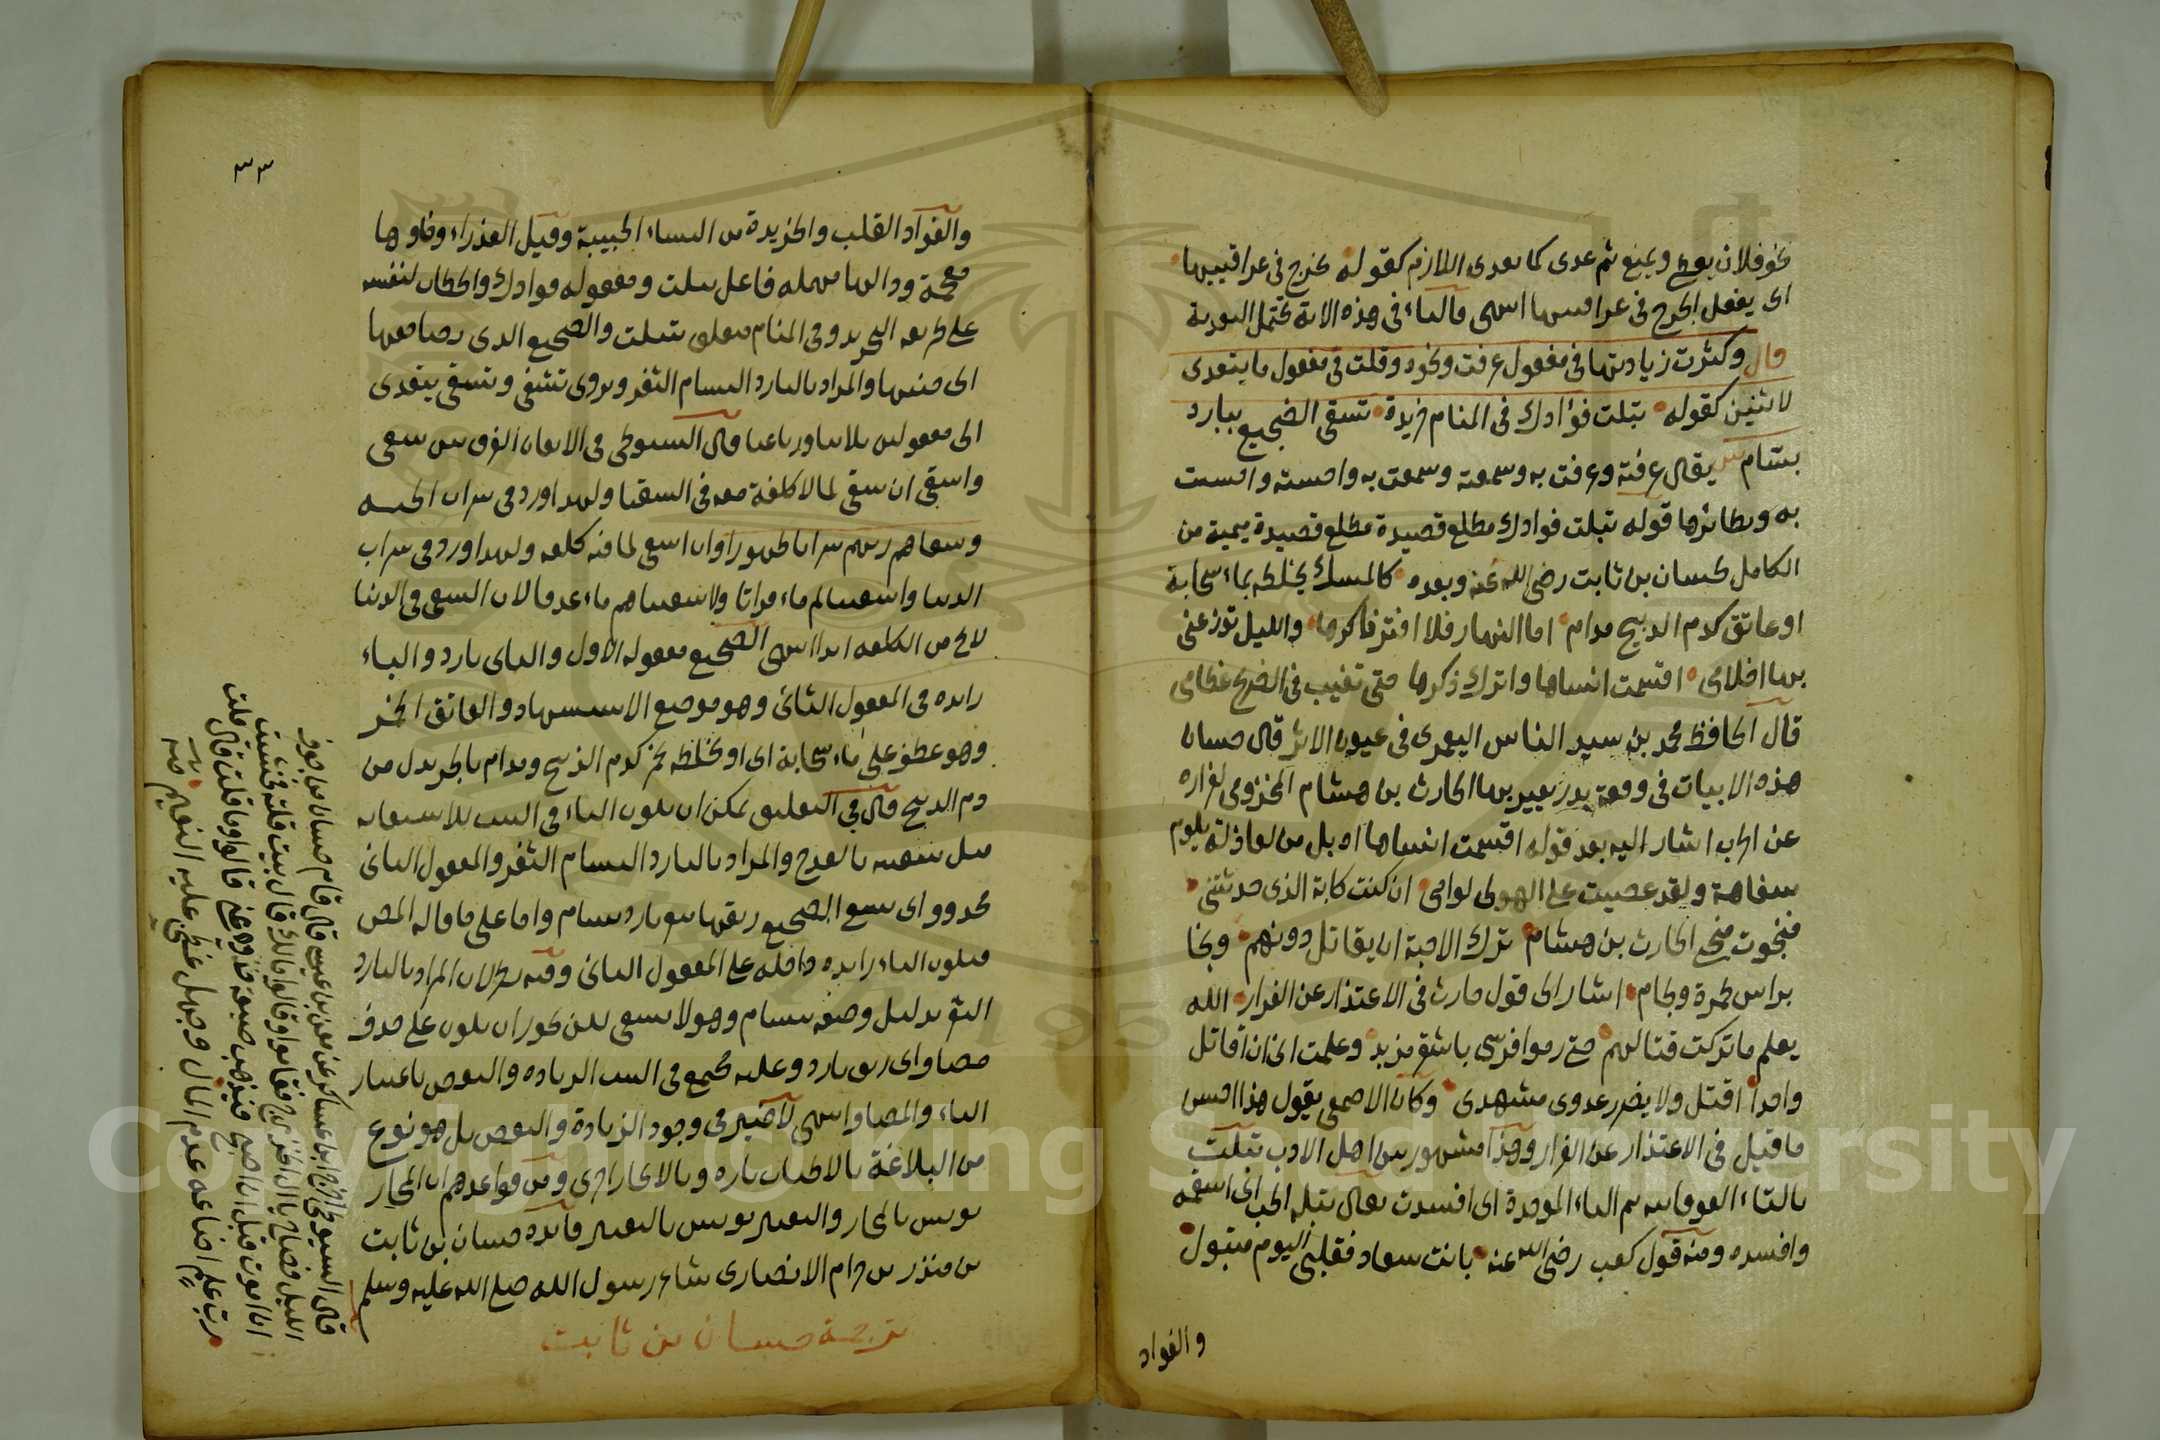 نحو فلان يعطى ويمنع ثم عدى كما يعدى اللازم كقوله يجرح فى عراقيبها
اى يفعل الجرح فى عراقيبها انتهى فالباء فى هذه الاية تحتمل التعدية
قال وكثرت زيادتها فى مفعول عرفت ونحوه وقلت فى مفعول ما يتعدى
لاثنين كقوله تبلت فؤادك فى المنام خريدة تسقى الضجيع ببارد
بسام ش يقال عرفته وعرفت به وسمعته وسمعت به واحسسته واحسست
به ونظائرها قوله تبلت فوادك مطلع قصيدة مطلع قصيدة ميمية من
الكامل لحسان بن ثابت رضى الله عنه وبعده كالمسك تخلطه بماء سحابة
او عاتق كدم الذبيح مدام اما النهار فلا افتر ذاكرها والليل توزعنى
بها احلامى اقسمت انساها واترك ذكرها حتى تغيب فى الضريح عظامى
قال الحافظ محمد بن سيد الناس اليعمرى فى عيون الاثر قال حسان
هذه الابيات فى وقعة بدر يعير بها الحارث بن هشام المخزومى لفراره
عن الحرب اشار اليه بعد قوله اقسمت انساها اه بل من لعاذلة يلوم
سفاهة ولقد عصيت على الهوى لوامى ان كنت كاذبة الذى حدثتنى
فنجوت منجى الحارث بن هشام ترك الاحبة ان يقاتل دونهم ونجا
براس طمرة ولجام اشار الى قول حارث فى الاعتذار عن الفرار الله
يعلم ما تركت قتالهم حتى رموا فرسى باشقر مزبد وعلمت انى ان اقاتل
واحدا اقتل ولا يضرر عدوى مشهدى وكان الاصمعى يقول هذا احسن
ما قيل فى الاعتذار عن الفرار وهذا مشهور بين اهل الادب تبلت
بالتاء الفوقانية ثم الباء الموحدة اى افسدت يقال تبله الحب اى اسقمه
وافسده ومنه قول كعب رضى الله عنه بانت سعاد فقلبى اليوم متبول
والفواد
٣٣
والفوآد القلب والخريدة من النساء الحبيبة وقيل العذراء وخاوها
معجمة ودالها مهملة فاعل تبلت ومفعوله فوادك والخطاب لنفسه
على طريقة التجريد وفى المنام متعلق بتبلت والضجيع الذى يضاجعها
اى جنبها والمراد بالبارد البسام الثغر ويروى تشفى وتسقى يتعدى
الى مفعولين ثلاثيا ورباعيا قال السيوطى فى الاتقان الفرق بين سقى
واسقى ان سقى لما لا كلفة معه فى السقيا ولهذا ورد فى شراب الجنة
وسقاهم ربهم شرابا طهورا وان اسقى لما فيه كلفة ولهذا ورد فى شراب
الدنيا واسقيناكم ماء فراتا ولاسقيناهم ماء غدقا لان السقى فى الدنيا
لا يخ من الكلفة ابدا انتهى الضجيع مفعوله الاول والثانى بارد والباء
زايدة فى المفعول الثانى وهو موضع الاستشهاد والعاتق الخمر
وهو عطف على ماء سحابة اى او تخلطه بخمر كدم الذبيح ومدام بالجر بدل من
دم الذبيح قال فى التعليق يمكن ان تكون الباء فى البيت للاستعانة
مثل سقيته بالقدح والمراد بالبارد البسام الثغر والمفعول الثانى
محذوف اى تسقى الضجيع ريقها بثغر بارد بسام واما على ما قاله المص
فتكون الباء زايدة داخلة على المفعول الثانى وفيه نظر لان المراد بالبارد
الثغر بدليل وصفه ببسام وهو لا يسقى لكن يجوز ان يكون على حذف
مضاف اى ريق بارد وعليه يجتمع فى البيت الزيادة والنقص باعتبار
الباء والمضاف انتهى لا ضير فى وجود الزيادة والنقص بل هو نوع
من البلاغة بالاطناب تارة وبالايجاز اخرى ومن قواعدهم ان المجاز
يونس بالمجاز والتغيير يونس بالتغيير فائدة حسان بن ثابت
بن منذر بن حرام الانصارى شاعر رسول الله صلى الله عليه وسلم
ترجمة حسان بن ثابت
قال السيوطى اخرج ابن عساكر عن معن بن عيسى قال قام حسان من جوف
الليل فصاح يا آل الخزرج فجاءوا وقالوا مالك قال بيت قلته فخشيت
ان اموت قبل ان اصبح فيذهب ضيعة خذوه عنى قالوا وما قلت قال قلت
رب علم اضاعه عدم المال وجهل غطى عليه النعيم